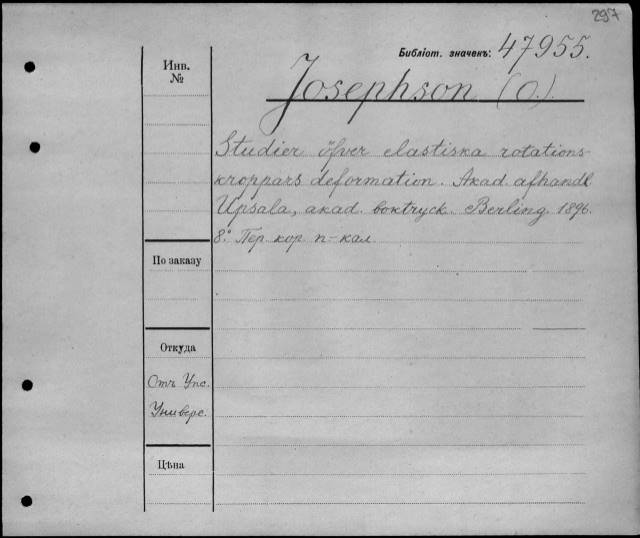 297
Библіот. значекъ: 47955.
Инв.
№
Josephson (O.)
Studier öfver elastiska rotations-
kroppars deformation. Akad. afhandl.
Upsala, akad. boktryck. Berling. 1896.
8.° Пер. кор. п-кал.
По заказу
Откуда
Отъ Упс.
Универс.
Цѣна